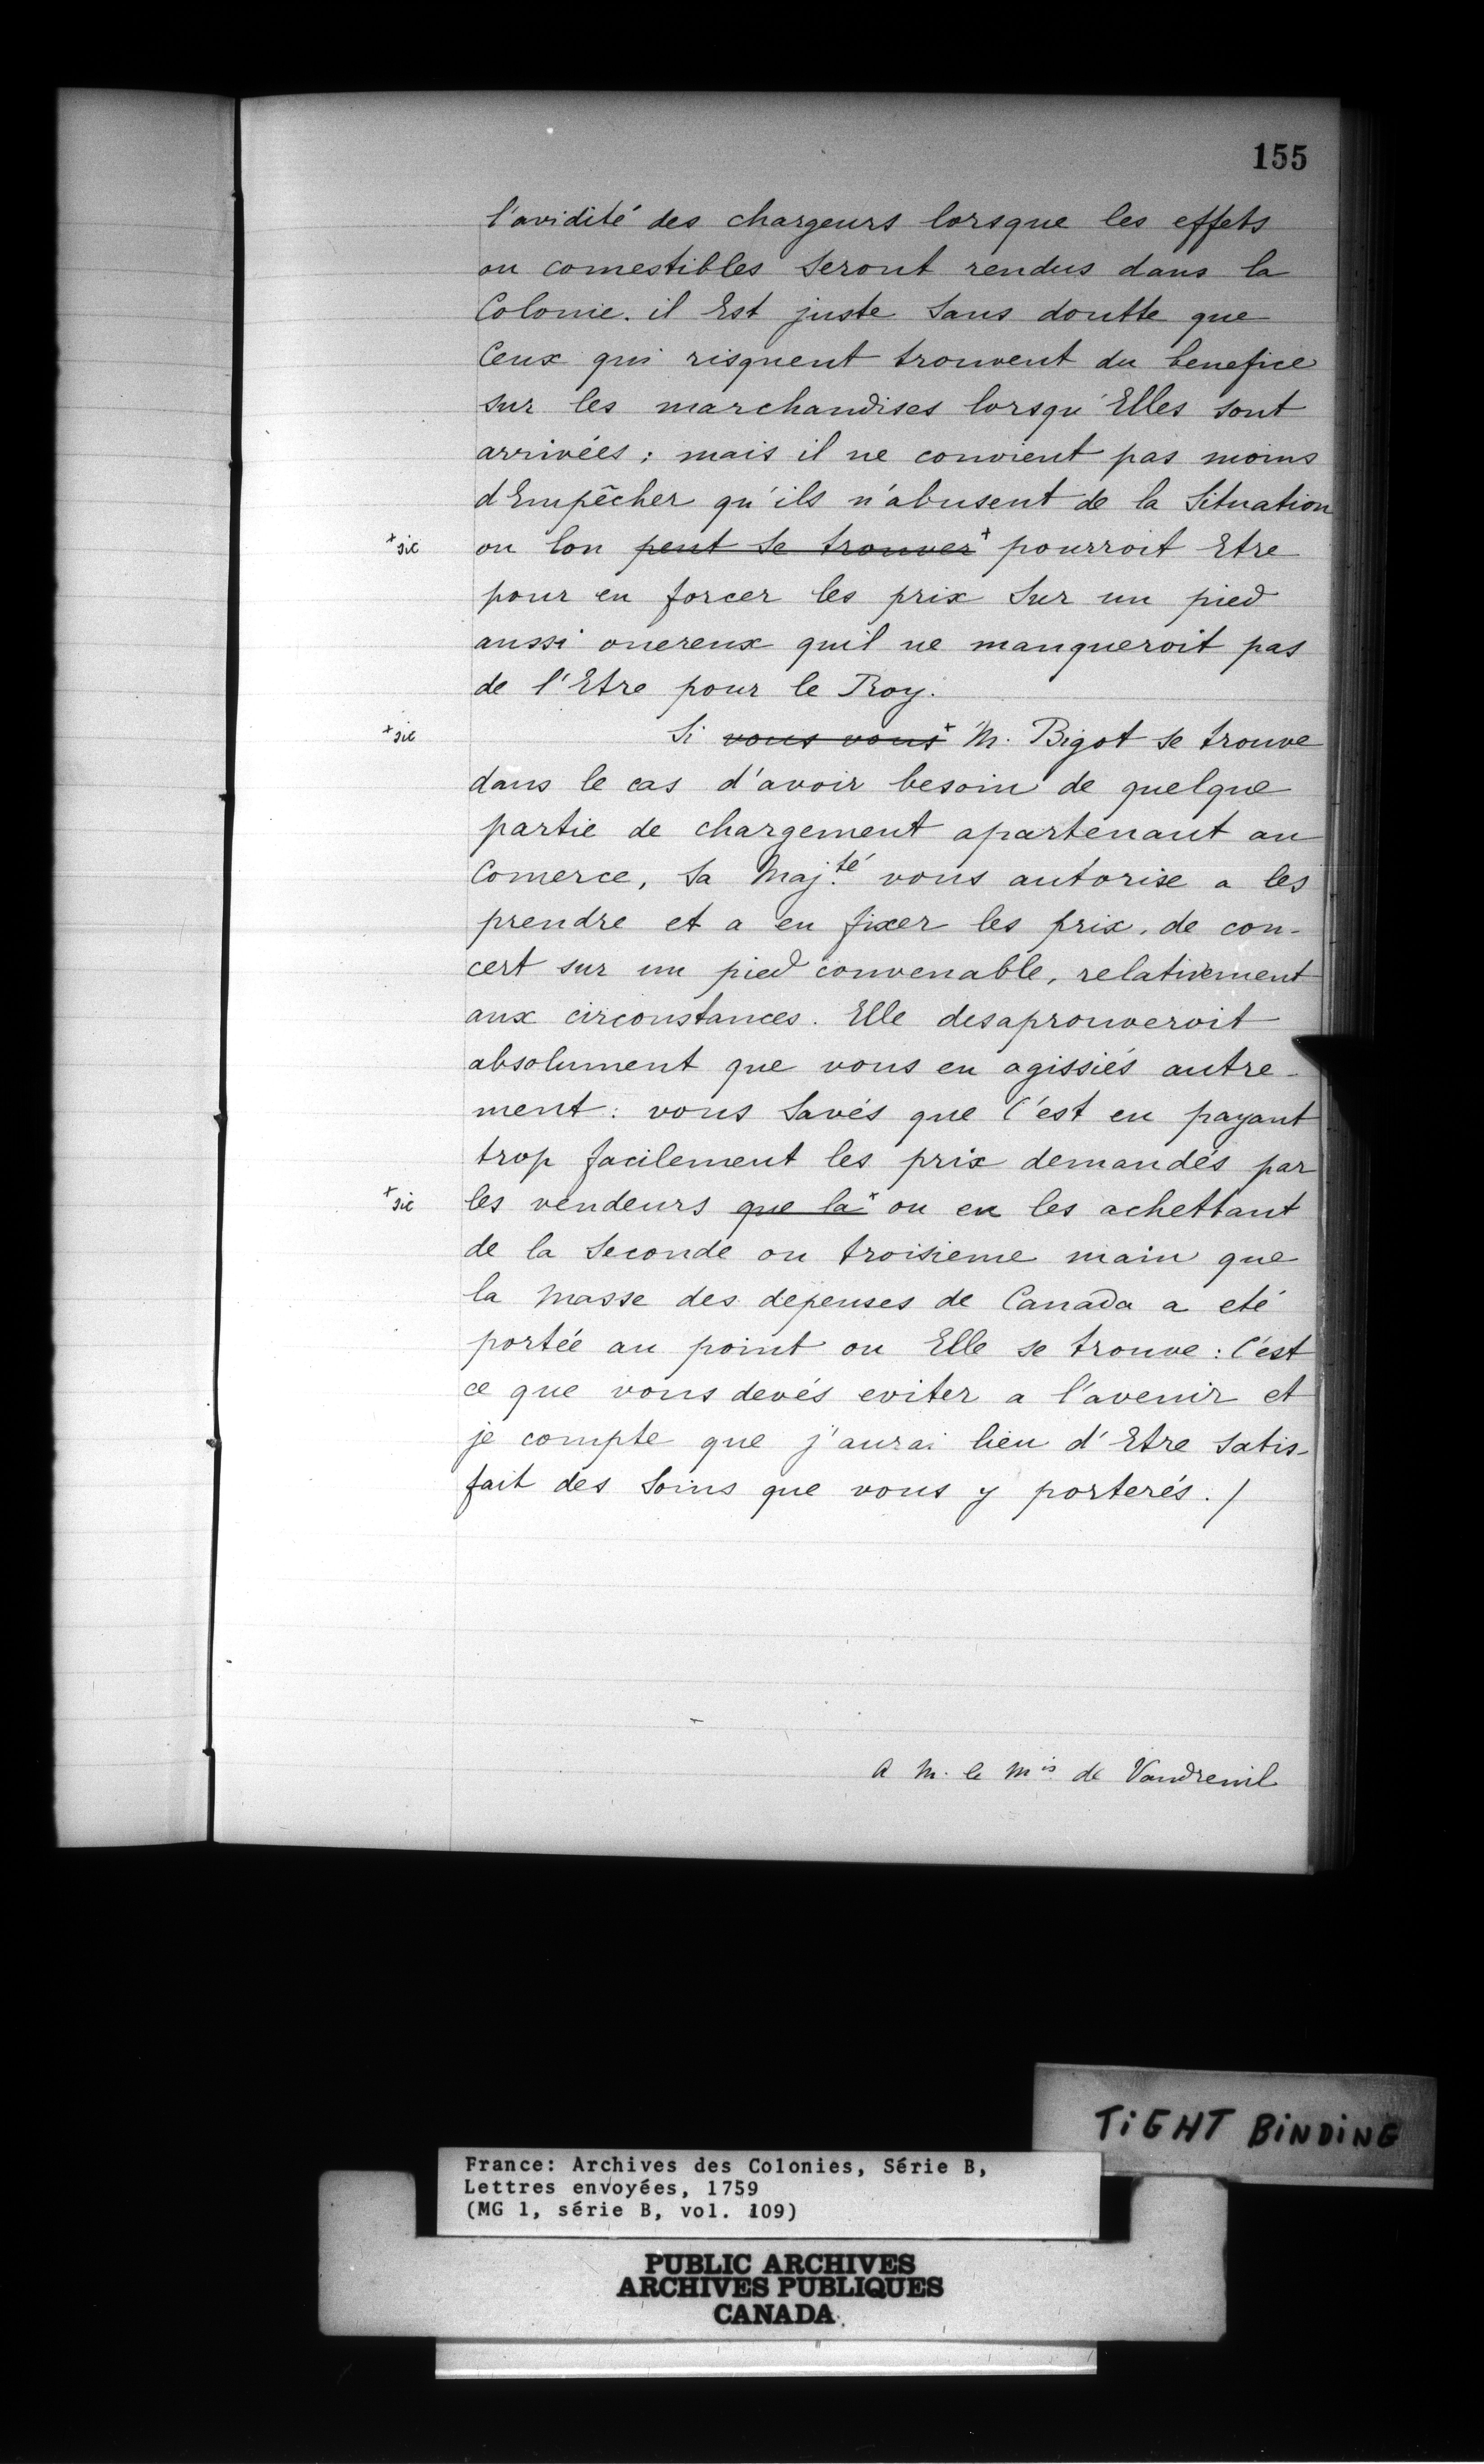 155
l'avidité des chargeurs lorsque les effets
ou comestibles Seront rendus dans la
Colonie. il Est juste Sans doutte que
Ceux qui risquent trouvent du benefice
sur les marchandises lorsqu'Elles sont
arrivées ; mais il ne convient pas moins
d'Empêcher qu'ils n'abusent de la Situation
+sic ou lon peut se trouver+ pourroit Etre
pour en forcer les prix Sur un pied
aussi onereux quil ne manqueroit pas
de l'Etre pour le Roy.
+sic Si vous vous+ M. Bigot se trouve
dans le cas d'avoir besoin de quelque
partie de chargement apartenant au
Comerce, Sa Maj.té vous autorise a les
prendre et a en fixer les prix, de con-
cert sur un pied convenable, relativement
aux circonstances. Elle desaprouveroit
absolument que vous en agissiés autre-
ment : vous Savés que C'est en payant
trop facilement les prix demandés par
+sic les vendeurs que la+ ou en les achettant
de la Seconde ou troisieme main que
la Masse des depenses de Canada a eté
portée au point ou Elle se trouve : C'est
ce que vous devés eviter a l'avenir et
je compte que j'aurai lieu d'Etre satis-
fait des Soins que vous y porterés. /
A M. le Mis de Vaudreuil
TiGHT BiNDiNG
France: Archives des Colonies, Série B,
Lettres envoyées, 1759
(MG 1, série B, vol. 109)
PUBLIC ARCHIVES
ARCHIVES PUBLIQUES
CANADA